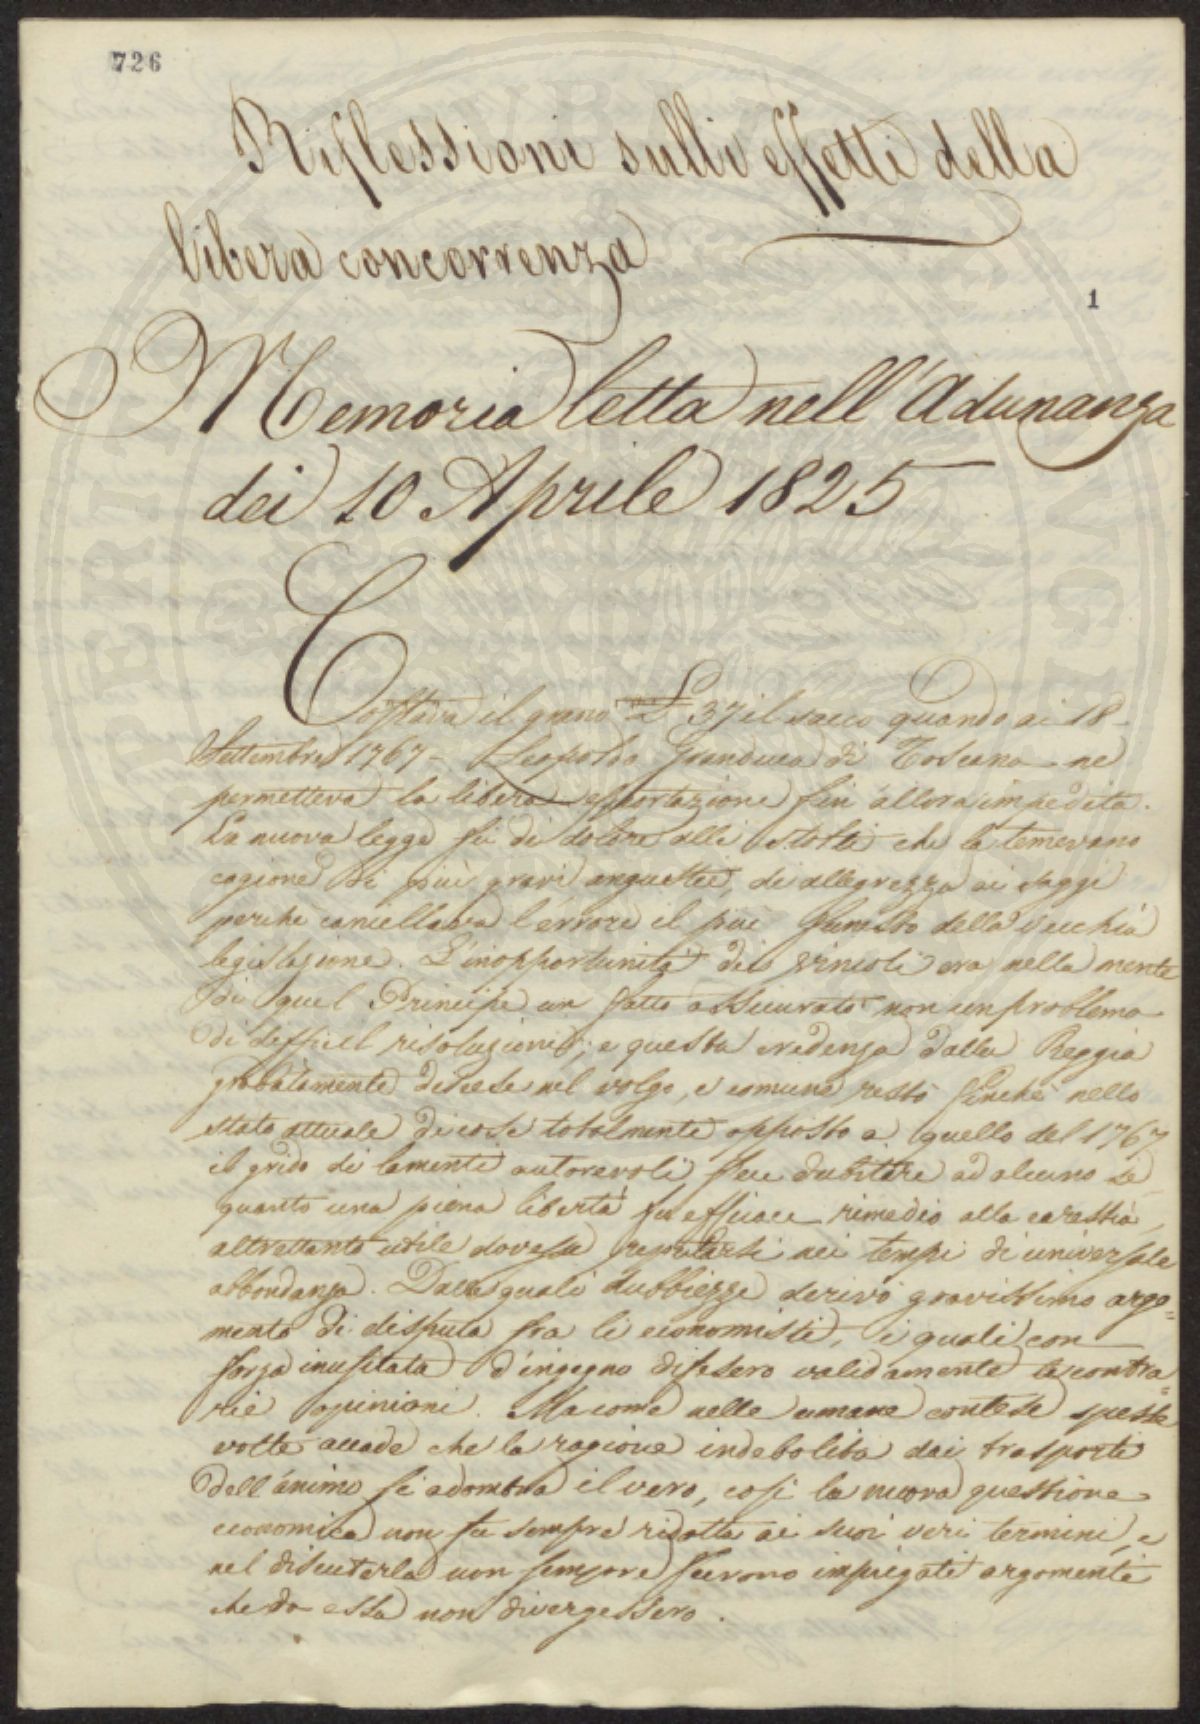 726
Riflessioni sulli effetti della
libera concorrenza
1
Memoria letta nell'Adunanza
dei 10 Aprile 1825
Costava il grano £ 37 il sacco quando ai 18
Settembre 1767 - Leopoldo Granduca di Toscana ne
permetteva la libera esportazione fin allora impedita.
La nuova legge fu di dolore alli stolti che la temevano
cagione di più gravi angustie, di allegrezza ai saggi
perchè cancellava l'errore il più funesto della vecchia
legislazione. L'inopportunità dei vincoli era nella mente
di quel Principe un fatto assicurato non un problema
di difficil risoluzione, e questa evidenza dalla Reggia
gradatamente discese nel volgo, e comune restò finchè nello
stato attuale di cose totalmente opposto a quello del 1767
il grido di lamenti autorevoli fece dubitare ad alcuno se
quanto una piena libertà fu efficace rimedio alla carestia,
altrettanto utile dovesse reputarsi nei tempi di universale
abbondanza. Dalle quali dubbiezze derivò gravissimo argo=
mento di disputa fra li economisti, i quali con
forza inusitata d'ingegno difesero validamente le contra=
rie opinioni. Ma come nelle umane contese spesse
volte accade che la ragione indebolita dai trasporti
dell'animo si adombra il vero, così la nuova questione
economica non fu sempre ridotta ai suoi veri termini, e
nel discuterla non sempre furono impiegati argomenti
che da essa non divergessero.